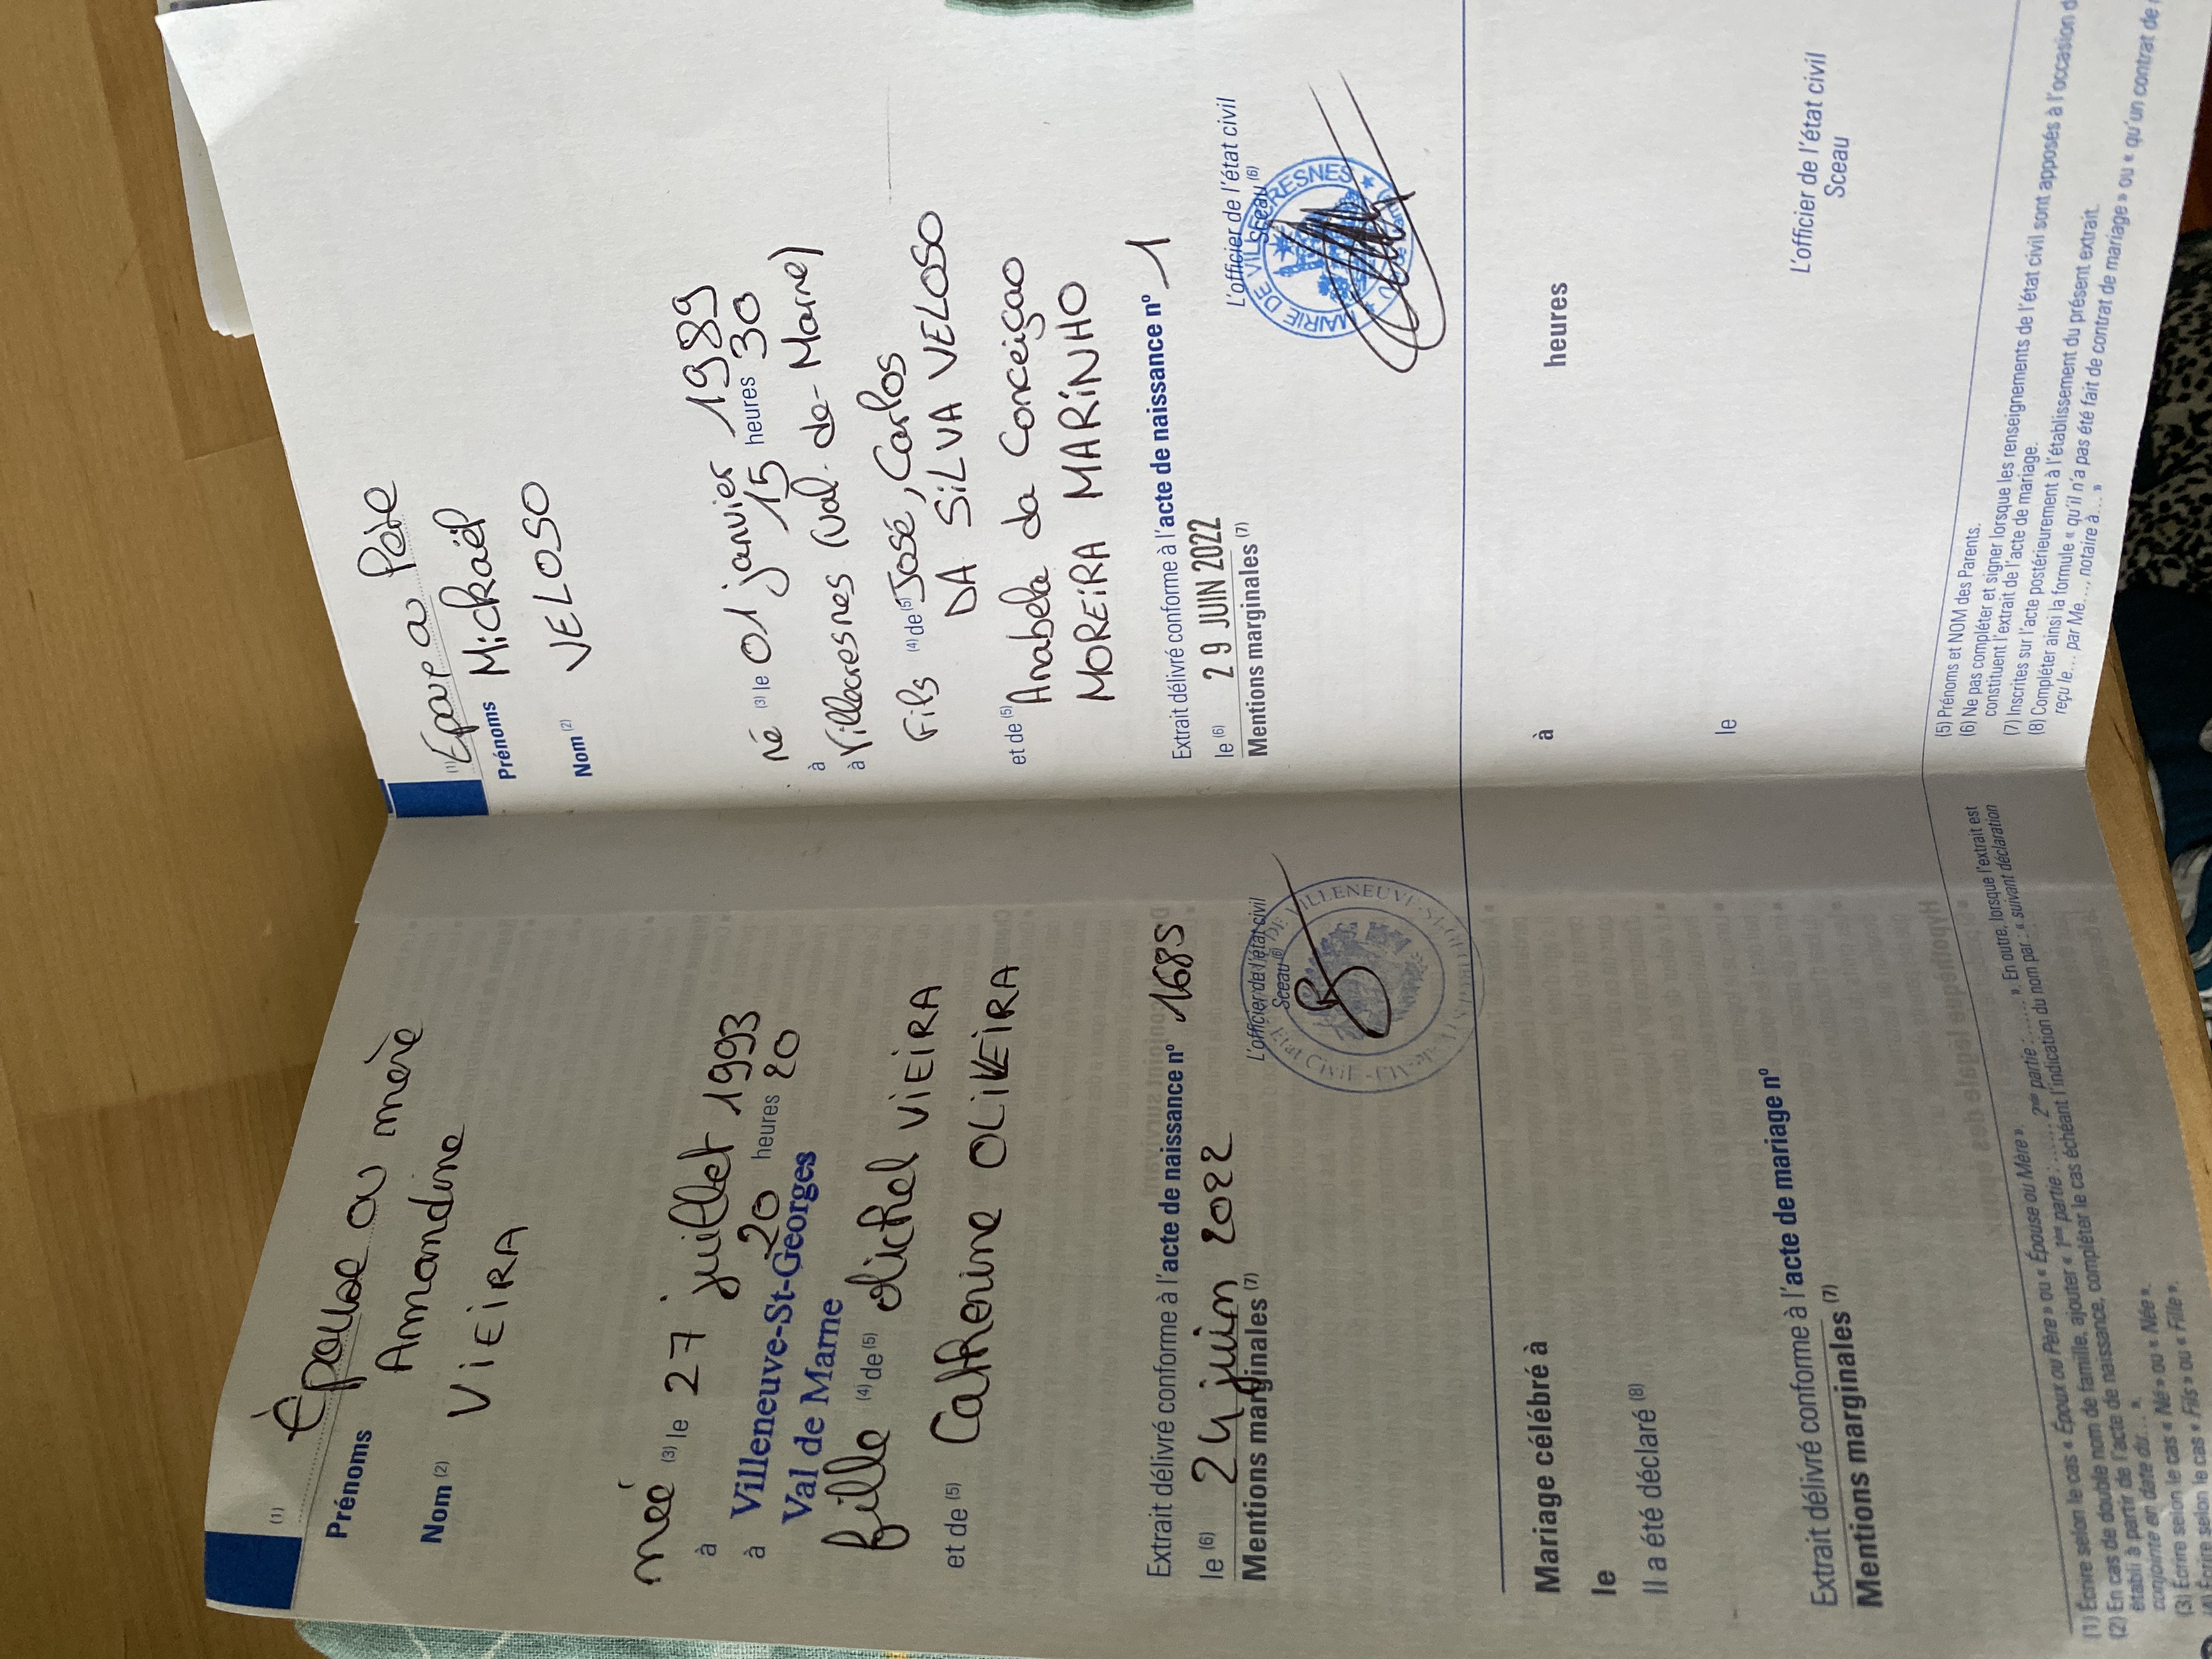 (1) Épouse ou mère
Prénoms Amandine
Nom (2) VIEIRA
née (3) le 27 juillet 1993
à 20 heures 20
à Villeneuve-St-Georges
Val de Marne
fille (4) de (5) Michel VIEIRA
et de (5) Catherine OLIVEIRA
Extrait délivré conforme à l'acte de naissance nº 1685
le (6) 24 juin 2022
L'officier de l'état civil
Sceau (6)
Mentions marginales (7)
Mariage célébré à
le
Il a été déclaré (8)
Extrait délivré conforme à l'acte de mariage nº
Mentions marginales (7)
(1) Écrire selon le cas « Époux ou Père » ou « Épouse ou Mère ».
(2) En cas de double nom de famille, ajouter « 1ère partie : ...... 2nde partie : ...... ». En outre, lorsque l'extrait est
établi à partir de l'acte de naissance, compléter le cas échéant l'indication du nom par : « suivant déclaration
conjointe en date du... ».
(3) Écrire selon le cas « Né » ou « Née ».
(4) Écrire selon le cas « Fils » ou « Fille ».
(1) Epoux ou Père
Prénoms Mickaël
Nom (2) VELOSO
né (3) le 01 janvier 1989
à 15 heures 30
à Villecresnes (Val-de-Marne)
Fils (4) de (5) José, Carlos
DA SILVA VELOSO
et de (5) Anabela da Conceiçao
MOREIRA MARINHO
Extrait délivré conforme à l'acte de naissance nº 1
le (6) 29 JUIN 2022
L'officier de l'état civil
Sceau (6)
MAIRIE DE VILLECRESNES
Mentions marginales (7)
à heures
le
L'officier de l'état civil
Sceau
(5) Prénoms et NOM des Parents.
(6) Ne pas compléter et signer lorsque les renseignements de l'état civil sont apposés à l'occasion
constituent l'extrait de l'acte de mariage.
(7) Inscrites sur l'acte postérieurement à l'établissement du présent extrait.
(8) Compléter ainsi la formule « qu'il n'a pas été fait de contrat de mariage » ou « qu'un contrat de
reçu le... par Me..., notaire à... »